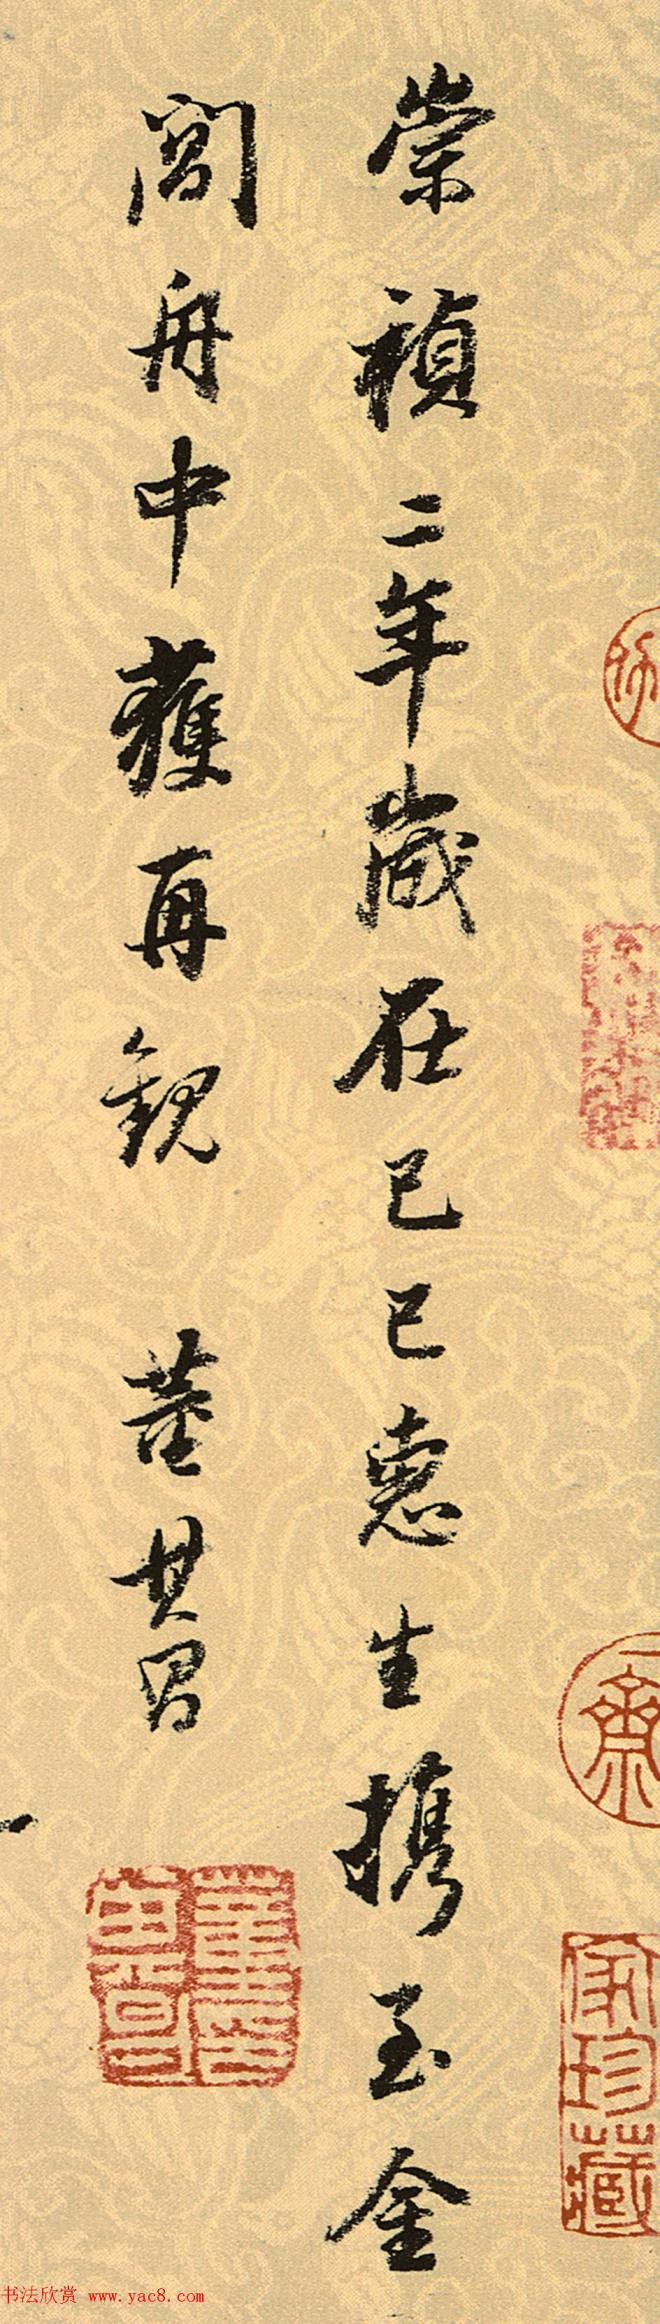 崇禎二年歲在己巳惠生携至金
閶舟中獲再觀 董其昌
家珍藏
书法欣赏 www.yac8.com